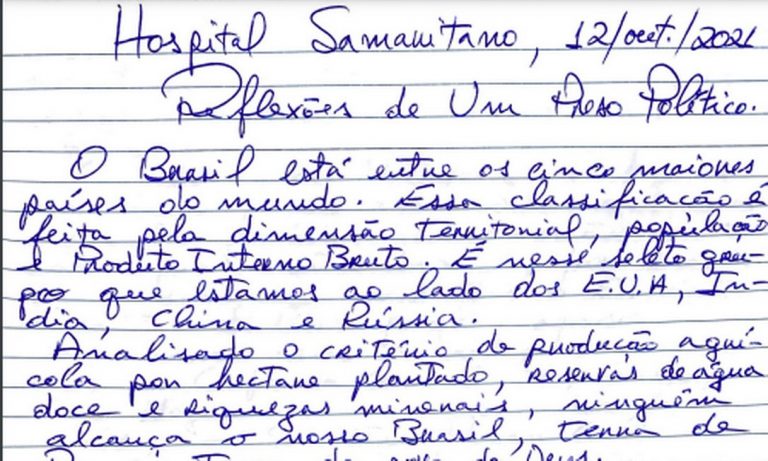 Hospital Samaritano, 12/out./2021
Reflexões de Um Preso Político.
O Brasil está entre os cinco maiores
países do mundo. Essa classificação é
feita pela dimensão territorial, população
e Produto Interno Bruto. É nesse seleto gru-
po que estamos ao lado dos E.U.A, Ín-
dia, China e Rússia.
Analisado o critério de produção agrí-
cola por hectare plantado, reservas de água
doce e riquezas minerais, ninguém
alcança o nosso Brasil, terra de
de Deus.